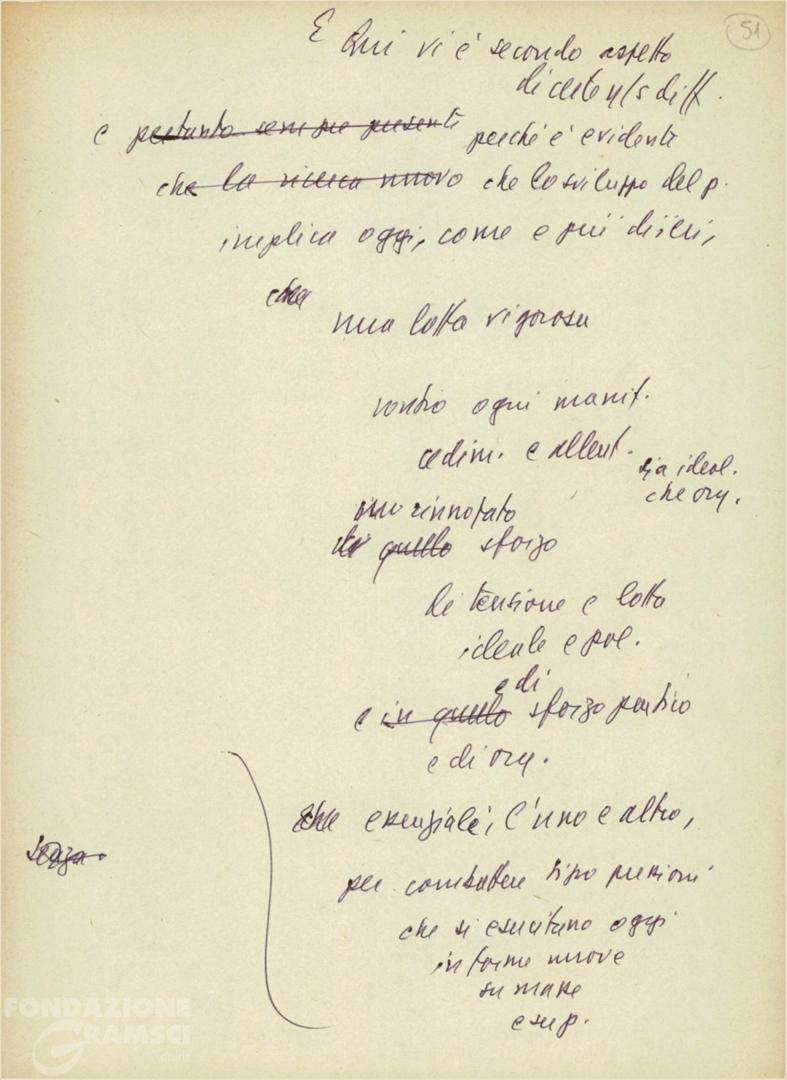 51
E Qui vi è secondo aspetto
di
e pertanto sempre presenti perché è evidente
che la ricerca nuovo che lo sviluppo del p.
implica oggi, come e più di ieri,
che
una lotta vigorosa
contro ogni manif.
cedim. e allent. sia ideol.
che org.
rinnovato
quello sforzo
di tensione e lotta
ideale e pol.
e di
e in quello sforzo pratico
e di org.
che essenziale, l'uno e altro,
senza
per combattere tipo pressioni
che si esercitano oggi
in forme nuove
su masse
e su p.
FONDAZIONE
GRAMSCI